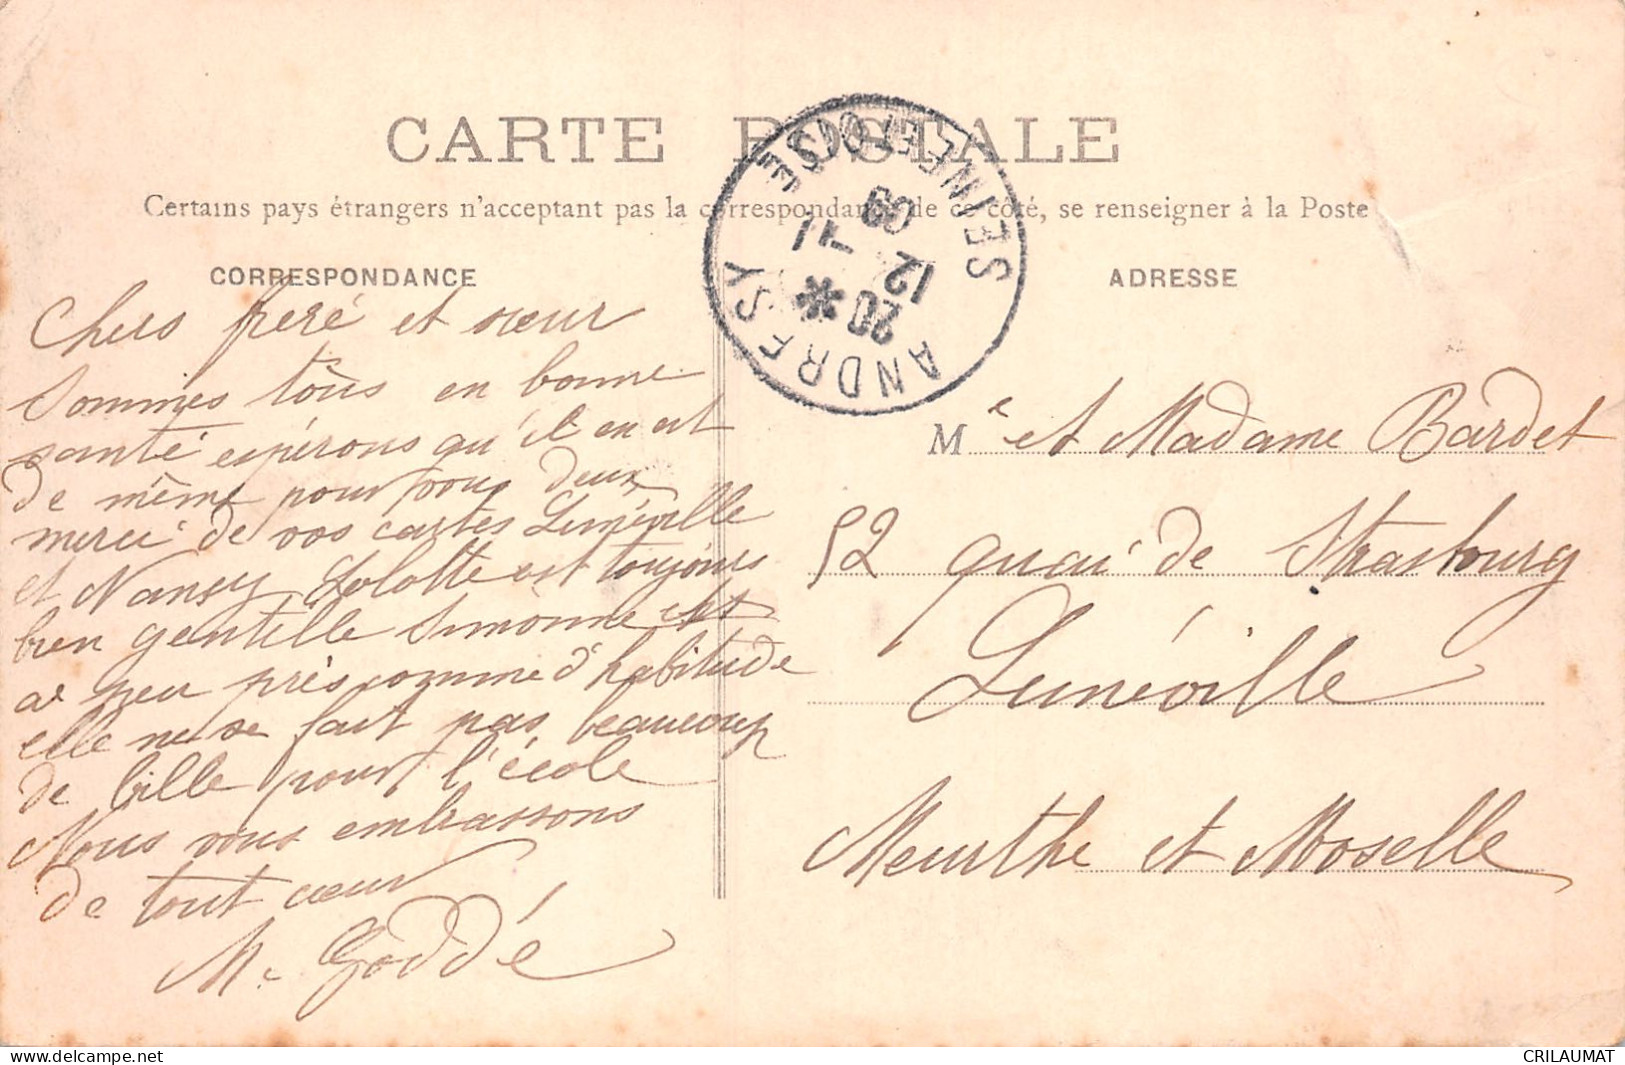 CARTE POSTALE
Certains pays étrangers n'acceptent pas la correspondance de ce côté, se renseigner à la Poste
CORRESPONDANCE
Chers freré et sœur
Sommes tous en bonne
santé espérons qu'il en est
de même pour vous deux
merci de vos cartes Lunéville
et Nancy Lolotte est toujours
bien gentille Simonne est
a peu près comme d'habitude
elle ne se fait pas beaucoup
de bille pour l'école
Nous vous embrassons
de tout cœur
M. Goddé
ANDRESY
SEINE-ET-OISE
20
12
09
ADRESSE
Me et Madame Bardet
52 quai de Strasbourg
Lunéville
Meurthe et Moselle
delcampe.net
CRILAUMAT